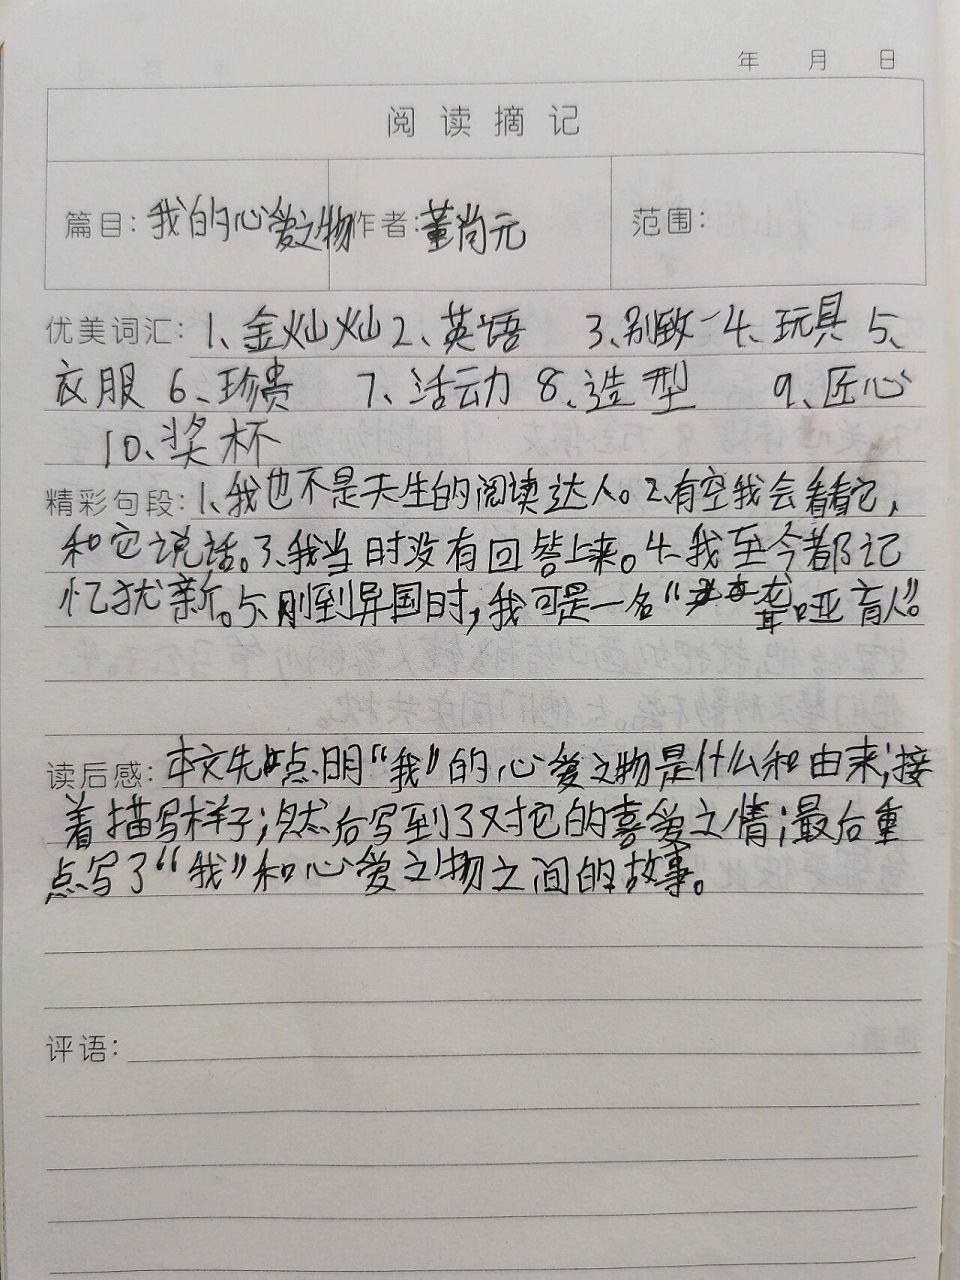 年 月 日
阅读摘记
篇目:我的心爱之物 作者:董尚元 范围:
优美词汇:1、金灿灿 2、英语 3、别致 4、玩具 5、
衣服 6、珍贵 7、活动 8、造型 9、匠心
10、奖杯
精彩句段:1、我也不是天生的阅读达人。2、有空我会看看它,
和它说话。3、我当时没有回答上来。4、我至今都记
忆犹新。5、刚到异国时,我可是一名“聋哑盲人”。
读后感:本文先点明“我”的心爱之物是什么和由来;接
着描写样子;然后写到了对它的喜爱之情;最后重
点写了“我”和心爱之物之间的故事。
评语: